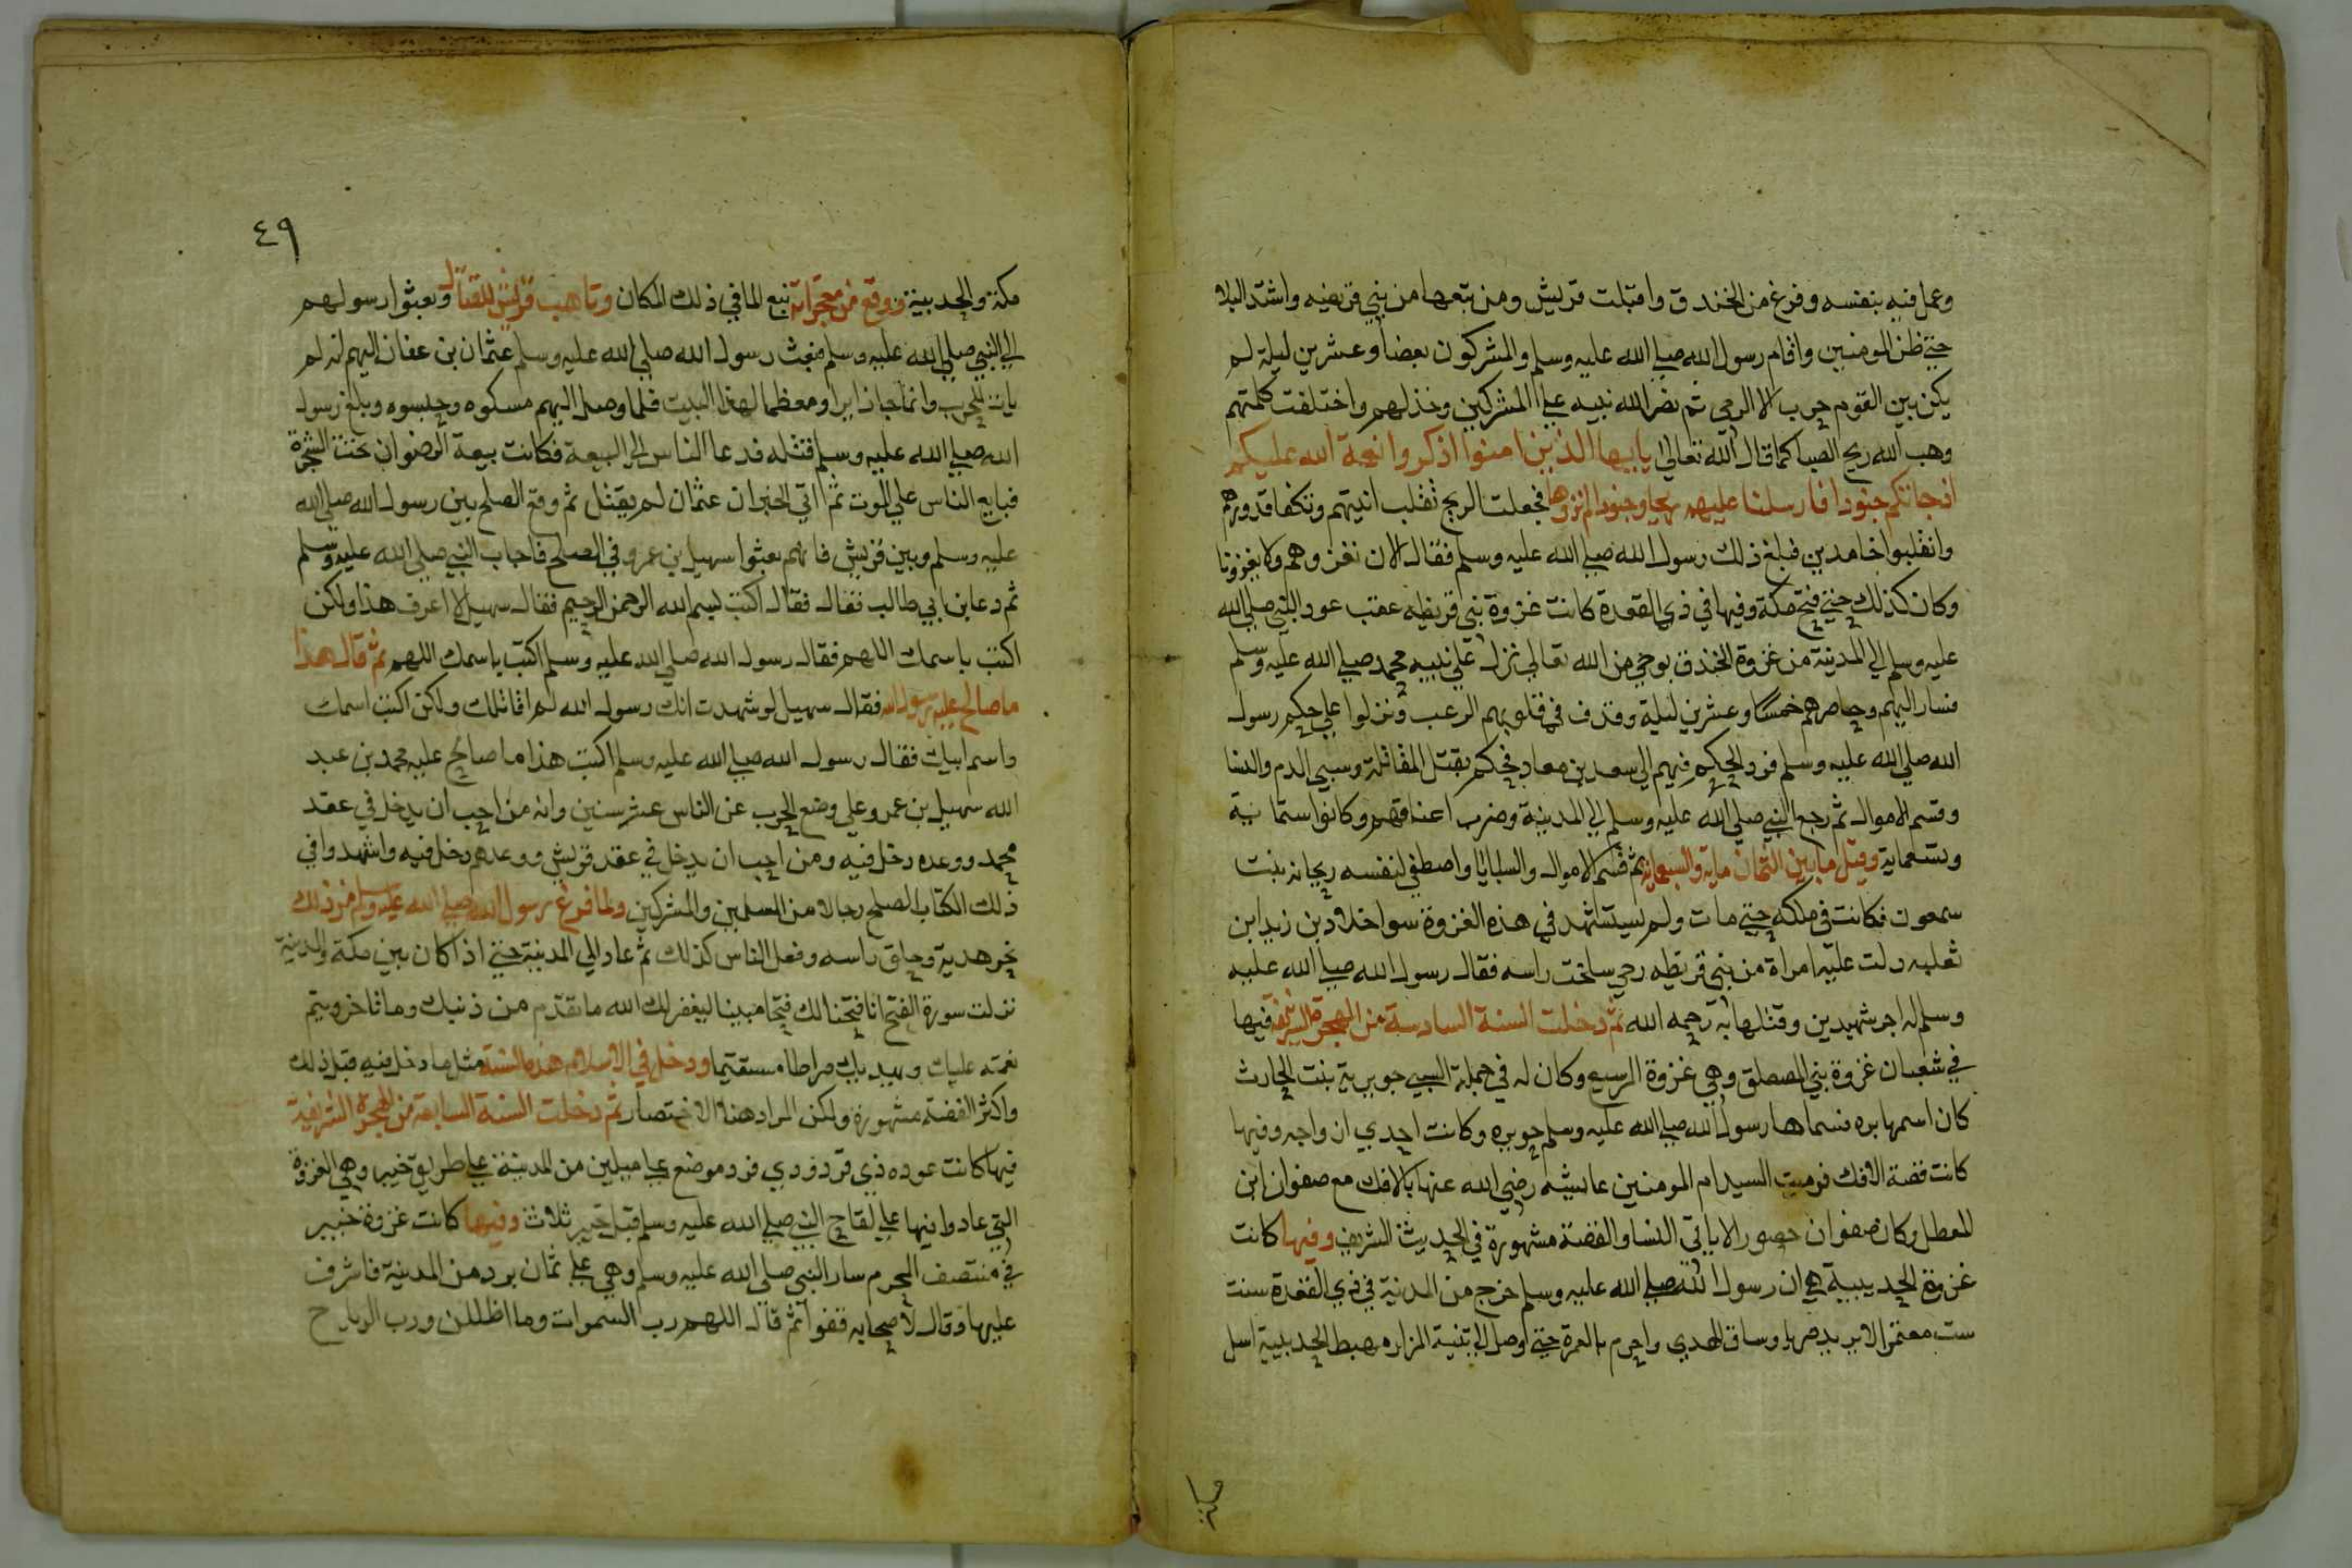 وعمل فيه بنفسه وفرغ من الخندق واقبلت قريش ومن تبعها من بني قريضه واشتد البلا
حتي ظن المومنين واقام رسول الله صلي الله عليه وسلم والمشركون بعضا وعشرين ليلة لم
يكن بين القوم حرب الا الرمي ثم نصر الله نبيه علي المشركين وخذلهم واختلفت كلمتهم
وهب الله ريح الصبا كما قال الله تعالي يا ايها الذين امنوا اذكروا نعمة الله عليكم
اذ جاتكم جنودا فارسلنا عليهم ريحا وجنودا لم تروها فجعلت الريح تقلب انيتهم وتكفا قدورهم
وانقلبوا خامدين فبلغ ذلك رسول الله صلي الله عليه وسلم فقال الان نغزوهم ولا يغزونا
وكان كذلك حتي فتح مكة وفيها في ذي القعدة كانت غزوة بني قريظه عقب عود النبي صلي الله
عليه وسلم الي المدينة من غزوة الخندق بوحي من الله تعالي نزل علي نبيه محمد صلي الله عليه وسلم
فسار اليهم وحاصرهم خمسا وعشرين ليلة وقذف في قلوبهم الرعب ونزلوا علي حكم رسول
الله صلي الله عليه وسلم فرد الحكم فيهم الي سعد بن معاد فحكم بقتل المقاتلة وسبي الدم والنسا
وقسم الاموال ثم رجع النبي صلي الله عليه وسلم الي المدينة وضرب اعناقهم وكانوا ستماية
وتسعماية وقيل ما بين الثمان ماية والسبعماية ثم قسم الاموال والسبايا واصطفي لنفسه ريحانه بنت
سمعون فكانت في ملكه حتي مات ولم يستشهد في هذه الغزوة سوا خلاد بن زيد ابن
ثعلبه دلت عليه امراة من بني قريظه رحي ساخت راسه فقال رسول الله صلي الله عليه
وسلم له اجر شهيدين وقتلها به رحمه الله ثم دخلت السنة السادسة من الهجرة الشريفة فيها
في شعبان غزوة بني المصطلق وهي غزوة المريسيع وكان له في جملة السبي جويرية بنت الحارث
كان اسمها بره فسماها رسول الله صلي الله عليه وسلم جويره وكانت احدي ازواجه وفيها
كانت قصة الافك فرميت السيد ام المومنين عايشه رضي الله عنها بالافك مع صفوان ابن
المعطل وكان صفوان حصورا لا ياتي النسا والقصة مشهورة في الحديث الشريف وفيها كانت
غزوة الحديبية هي ان رسول الله صلي الله عليه وسلم خرج من المدينة في ذي القعدة سنت
ست معتمرا لا يريد حربا وساق الهدي واحرم بالعمرة حتي اوصل الي ثنية المزار مهبط الحديبية اسل
مكة
٤٩
مكة والحديبية ووقع من معجزاته نبع الما في ذلك المكان وتاهب قريش للقتال وبعثوا رسولهم
الي النبي صلي الله عليه وسلم فبعث رسول الله صلي الله عليه وسلم عثمان بن عفان اليهم انه لم
يات لحرب وانما جا زايرا ومعظما لهذا البيت فلما وصل اليهم مسكوه وحبسوه وبلغ رسول
الله صلي الله عليه وسلم قتله فدعا الناس الي البيعة فكانت بيعة الرضوان تحت الشجرة
فبايع الناس علي الموت ثم اتي الخبر ان عثمان لم يقتل ثم وقع الصلح بين رسول الله صلي الله
عليه وسلم وبين قريش فانهم بعثوا سهيل بن عمرو في الصلح فاجاب النبي صلي الله عليه وسلم
ثم دعا بن ابي طالب فقال فقال اكتب بسم الله الرحمن الرحيم فقال سهيل لا اعرف هذا ولكن
اكتب باسمك اللهم فقال رسول الله صلي الله عليه وسلم اكتب باسمك اللهم ثم قال هذا
ما صالح عليه رسول الله فقال سهيل لو شهدت انك رسول الله لم اقاتلك ولكن اكتب اسمك
واسم ابيك فقال رسول الله صلي الله عليه وسلم اكتب هذا ما صالح عليه محمد بن عبد
الله سهيل بن عمرو علي وضع الحرب عن الناس عشر سنين وانه من احب ان يدخل في عقد
محمد ووعده دخل فيه ومن احب ان يدخل في عقد قريش ووعدهم دخل فيه واشهدوا في
ذلك الكتاب الصلح رجالا من المسلمين والمشركين ولما فرغ رسول الله صلي الله عليه وسلم من ذلك
نحر هديه وحلق راسه وفعل الناس كذلك ثم عاد الي المدينة حتي اذا كان بين مكة والمدينة
نزلت سورة الفتح انا فتحنا لك فتحا مبينا ليغفر لك الله ما تقدم من ذنبك وما تاخر ويتم
نعمته عليك ويهديك صراطا مستقيما ودخل في الاسلام هذه السنة مثل ما دخل فيه قبل ذلك
واكثر القصة مشهورة ولكن المراد هنا الاختصار ثم دخلت السنة السابعة من الهجرة الشريفة
فيها كانت عوده ذي قرد وذي قرد موضع علي ميلين من المدينة علي طريق خيبر وهي الغزوة
التي عادوا فيها علي لقاح النبي صلي الله عليه وسلم قبل خيبر ثلاث وفيها كانت غزوة خيبر
في منتصف المحرم سار النبي صلي الله عليه وسلم وهي علي ثمان برد من المدينة فاشرف
عليها وقال لاصحابه قفوا ثم قال اللهم رب السموات وما اظللن ورب الرياح